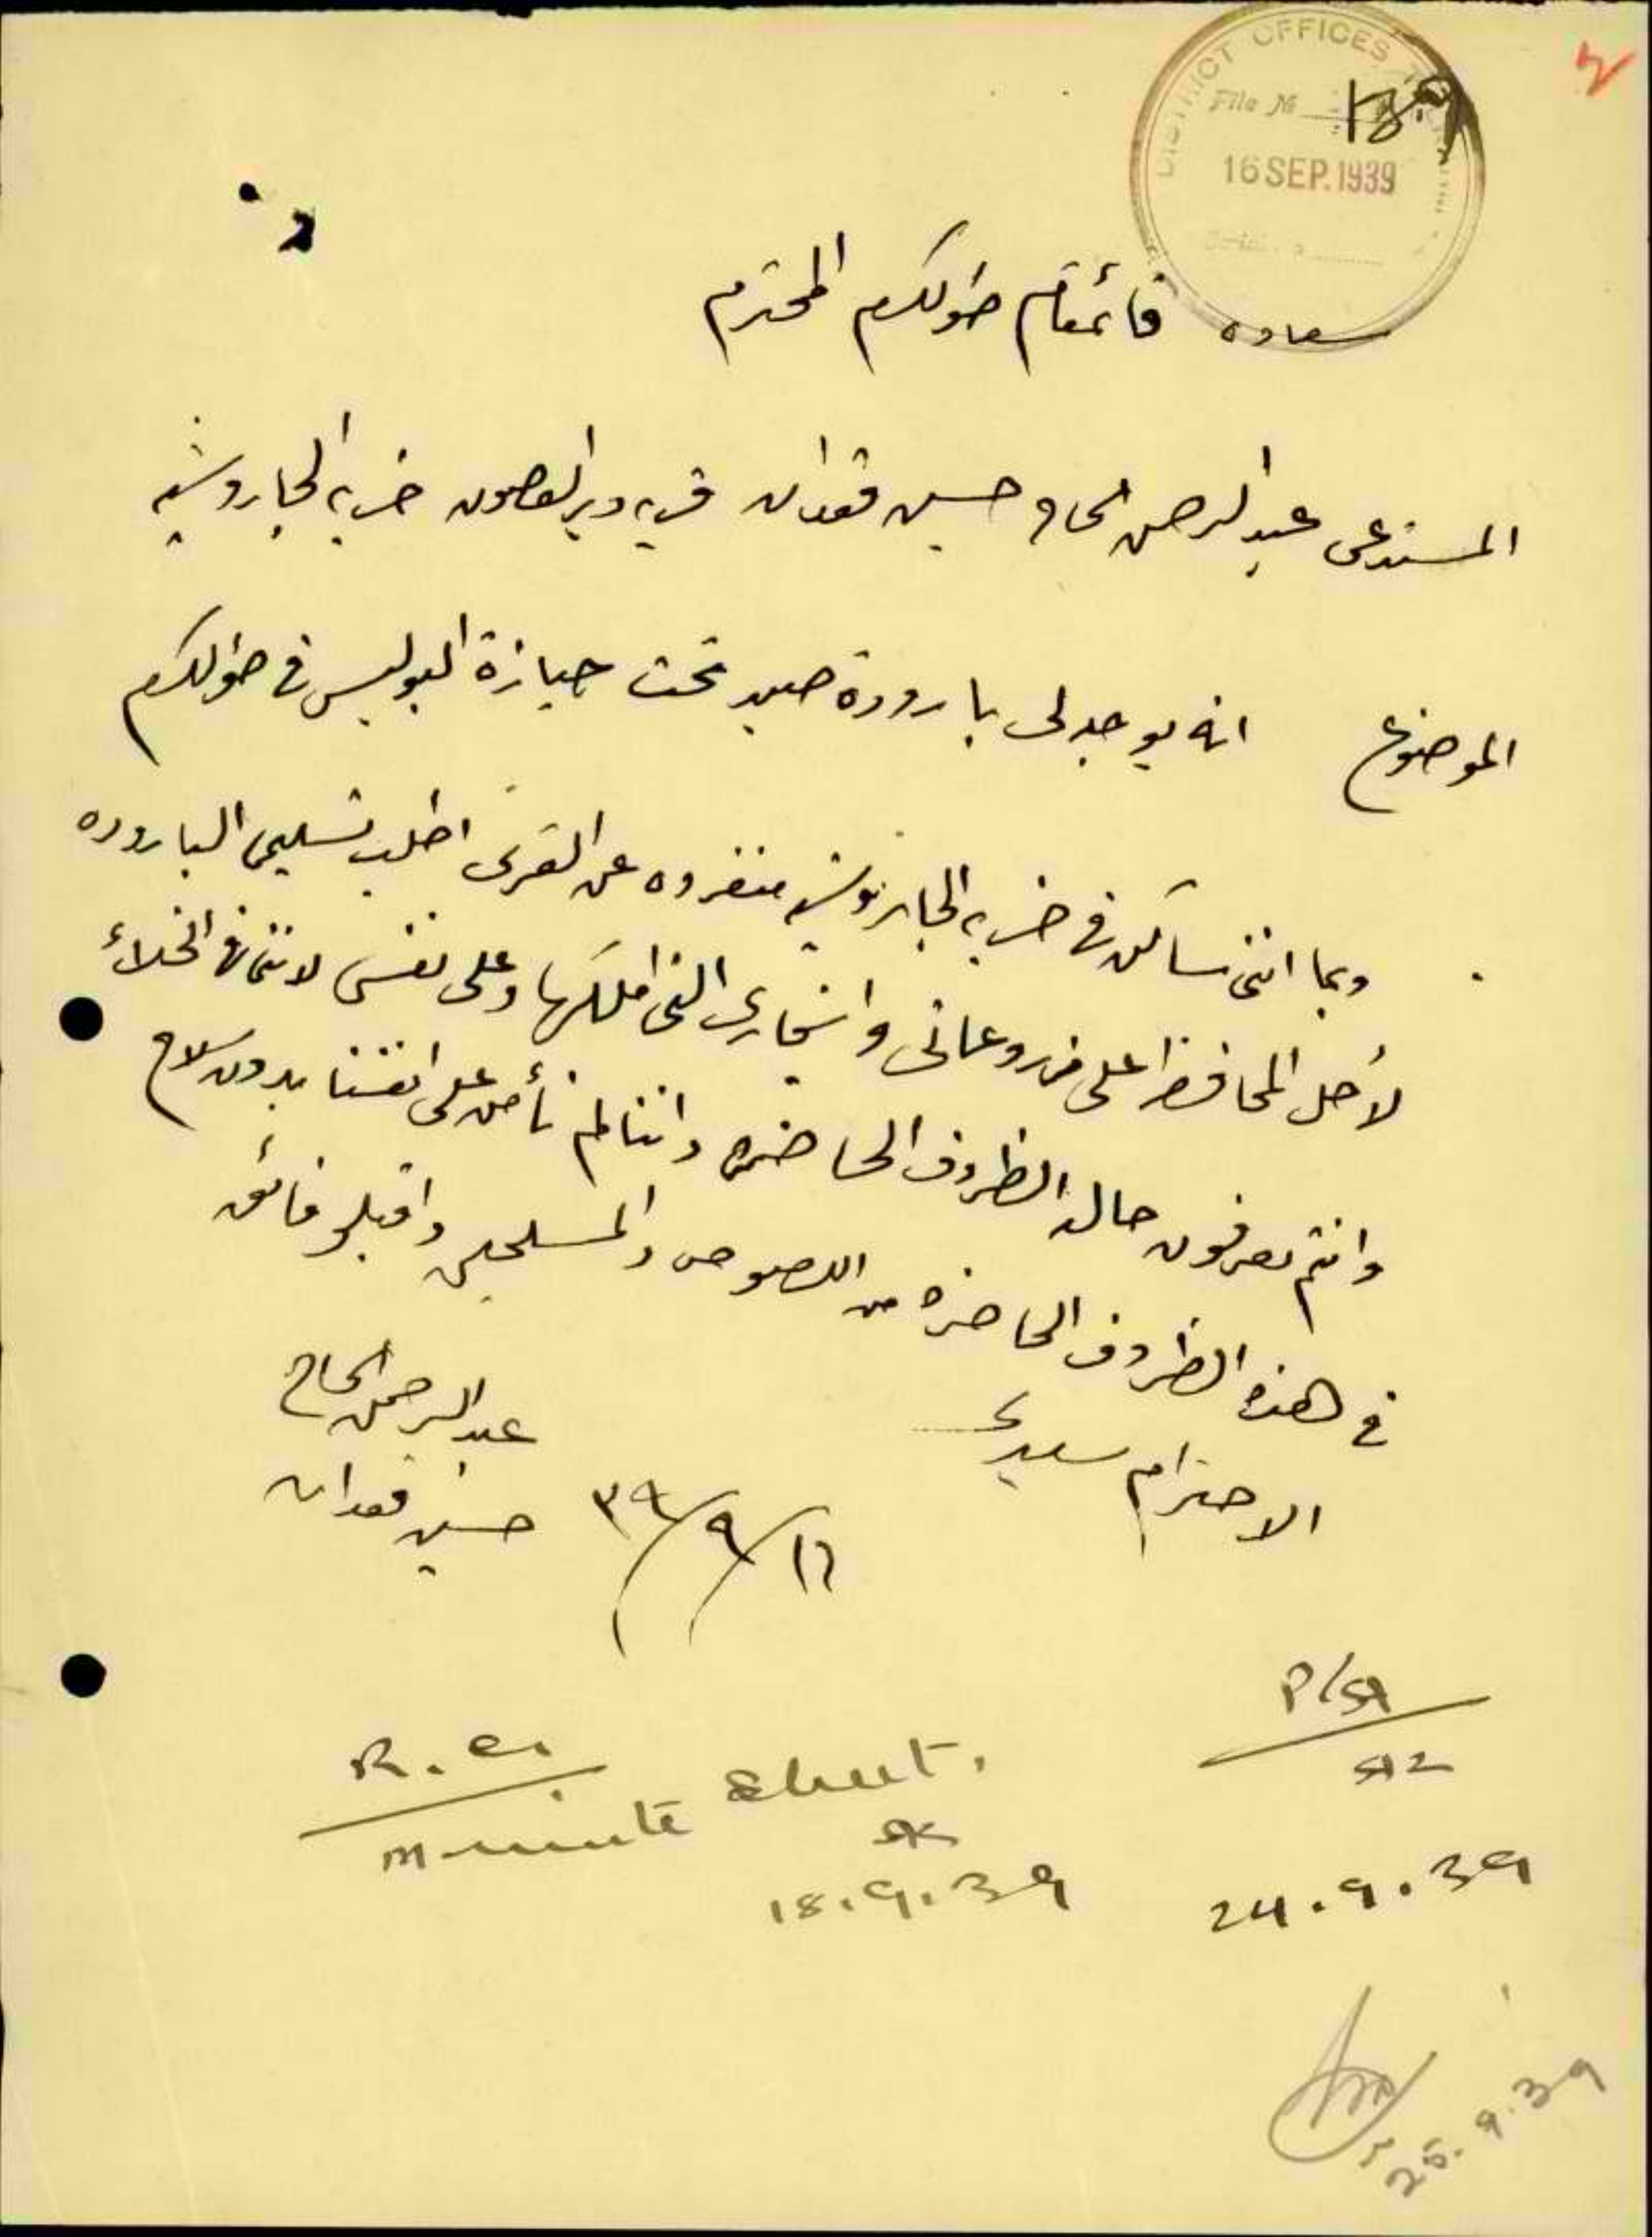 2
DISTRICT OFFICES
File No
189
16 SEP. 1939
2
سعادة قائمقام طولكرم المحترم
المستدعى عبد الرحمن الحاج حسين قعدان قرية دير الغصون خربة الجاروشية
الموضوع انه يوجد لى بارودة صيد تحت حيازة البوليس في طولكرم
وبما اننى ساكن في خربة الجاروشية منفرده عن القرى اطلب تسليمى الباروده
لأجل المحافظة على مزروعاتى واشجارى التى املكها وعلى نفسى لاننا في الخلاء
وانتم تعرفون حالة الظروف الحاضره واننا لم نأمن على انفسنا بدون سلاح
في هذه الظروف الحاضره من اللصوص والمسلحين واقبلو فائق
الاحترام سيدي
عبد الرحمن الحاج
حسين قعدان
١٦/٩/٣٩
R.C.
minute sheet.
18.9.39
P/SA
24.9.39
25.9.39